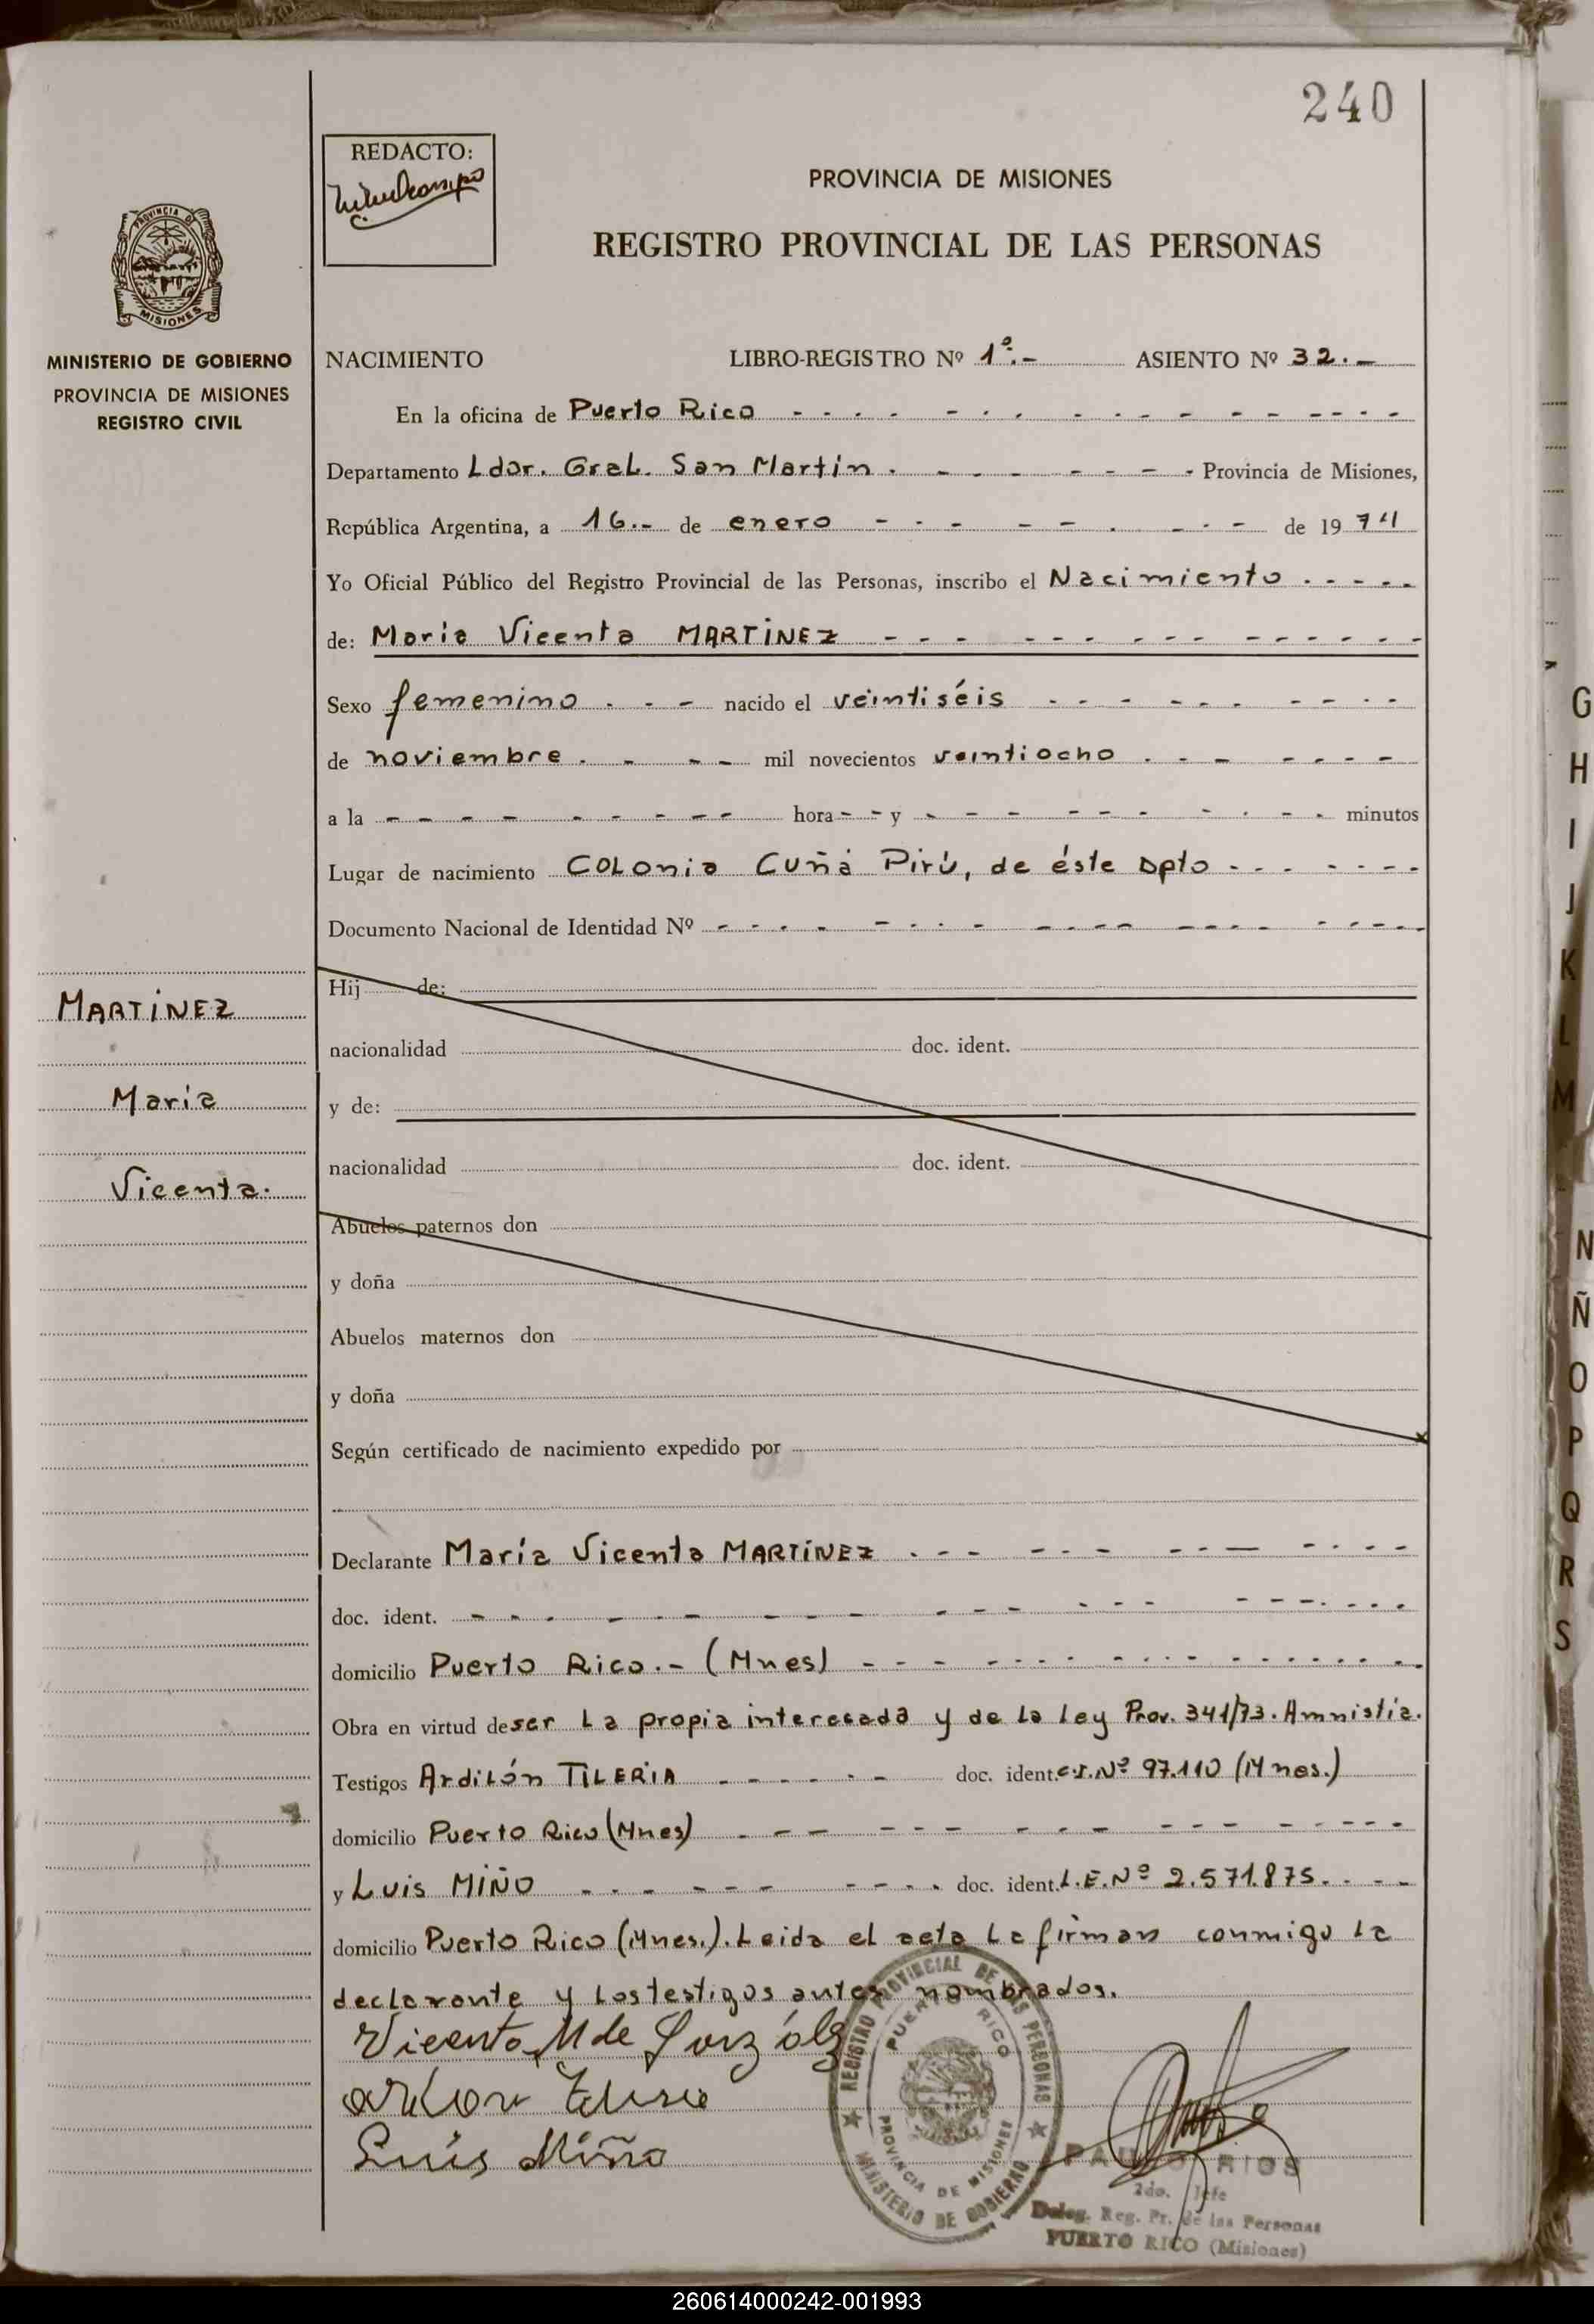 240
REDACTO:
PROVINCIA DE MISIONES
REGISTRO PROVINCIAL DE LAS PERSONAS
PROVINCIA DE
MISIONES
MINISTERIO DE GOBIERNO
PROVINCIA DE MISIONES
REGISTRO CIVIL
NACIMIENTO LIBRO-REGISTRO Nº 1º.- ASIENTO Nº 32.-
En la oficina de Puerto Rico
Departamento Ldor. Gral. San Martín. Provincia de Misiones,
República Argentina, a 16.- de enero de 19 74
Yo Oficial Público del Registro Provincial de las Personas, inscribo el Nacimiento
de: María Vicenta MARTÍNEZ
Sexo femenino nacido el veintiséis
de noviembre mil novecientos veintiocho
a la hora y minutos
Lugar de nacimiento Colonia Cuñá Pirú, de éste Dpto
Documento Nacional de Identidad Nº
Hij de:
nacionalidad doc. ident.
y de:
nacionalidad doc. ident.
Abuelos paternos don
y doña
Abuelos maternos don
y doña
Según certificado de nacimiento expedido por
MARTÍNEZ
María
Vicenta.
Declarante María Vicenta MARTÍNEZ
doc. ident.
domicilio Puerto Rico.- (Mnes)
Obra en virtud de ser la propia interesada y de la Ley Prov. 341/73. Amnistía.
Testigos Ardilón TILERIA doc. ident. C.I. Nº 97.110 (Mnes.)
domicilio Puerto Rico (Mnes)
y Luis MIÑO doc. ident. L.E. Nº 2.571.875.
domicilio Puerto Rico (Mnes.). Leida el acta la firman conmigo la
declarante y los testigos antes nombrados.
Vicenta M de
Luis Miño
REGISTRO PROVINCIAL DE LAS PERSONAS
PUERTO RICO
PROVINCIA DE MISIONES
MINISTERIO DE GOBIERNO
RIOS
2do. Jefe
Deleg. Reg. Pr. de las Personas
PUERTO RICO (Misiones)
G
H
I
J
K
L
M
N
Ñ
O
P
Q
R
S
260614000242-001993